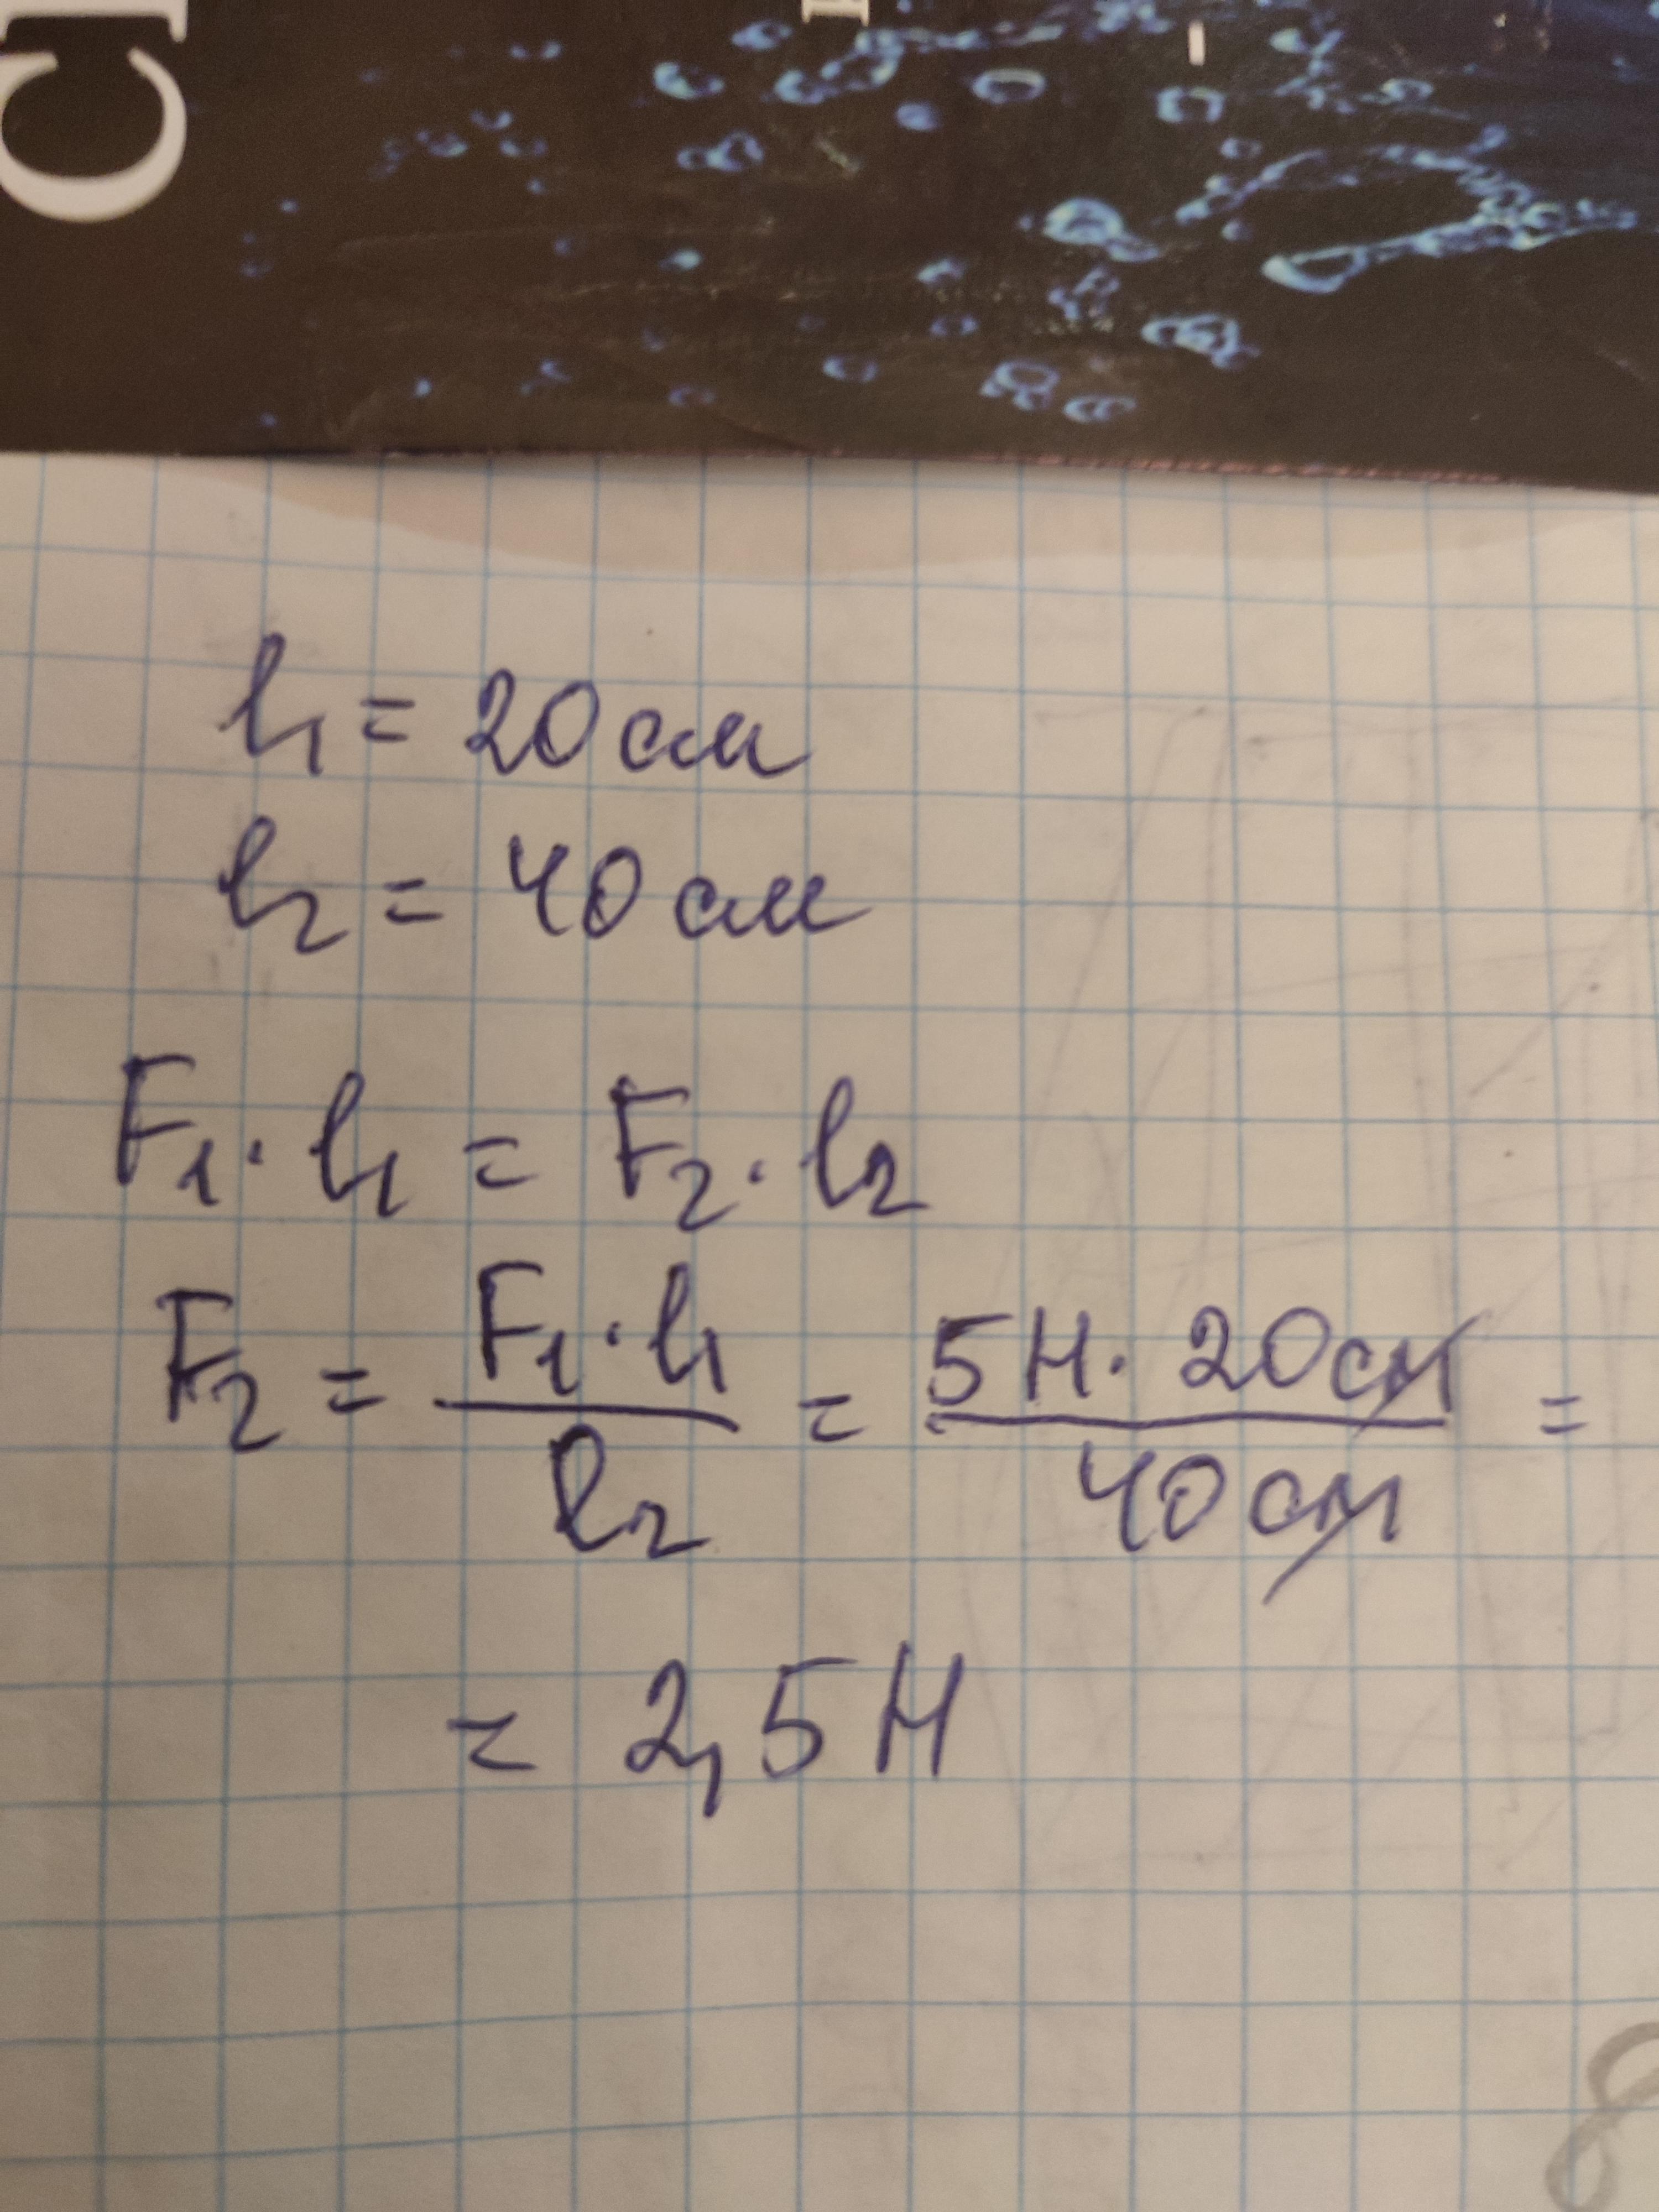 l₁ = 20 см
l₂ = 40 см
F₁ · l₁ = F₂ · l₂
F₂ = F₁ · l₁ / l₂ = 5 Н · 20 см / 40 см =
= 2,5 Н
8